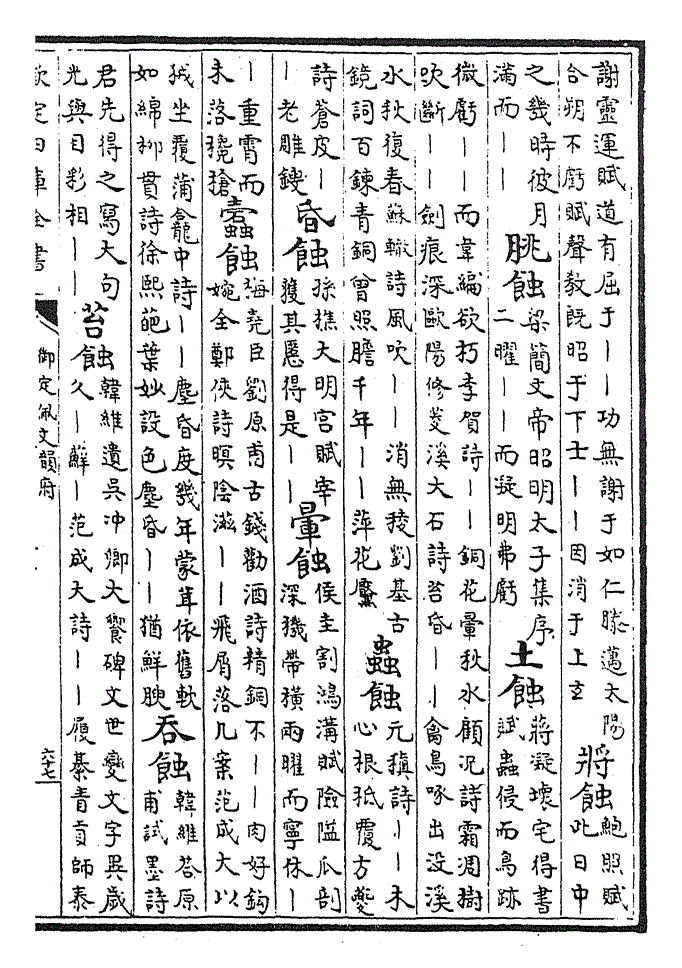 謝靈運賦道有屈于丨丨功無謝于如仁滕邁太陽
合朔不虧賦聲教既昭于下士丨丨因消于上玄
將蝕
鮑照賦
此日中
之幾時彼月
滿而丨丨
朓蝕
梁簡文帝昭明太子集序
二曜丨丨而凝明弗虧
土蝕
蔣凝壞宅得書
賦蟲侵而鳥跡
微虧丨丨而韋編欲朽李賀詩丨丨銅花暈秋水顧況詩霜凋樹
吹斷丨丨劍痕深歐陽修菱溪大石詩苔昏丨丨禽鳥啄出没溪
水秋復春蘇轍詩風吹丨丨消無稜劉基古
鏡詞百鍊青銅曾照膽千年丨丨萍花黶
蟲蝕
元稹詩丨丨木
心根柢覆方夔
詩蒼皮丨
丨老雕鎪
昏蝕
孫樵大明宮賦宰
獲其慝得是丨丨
暈蝕
侯圭割鴻溝賦險隘瓜剖
深機帶横兩曜而寧休丨
丨重霄而
未落攙搶
蠹蝕
梅堯臣劉原甫古錢勸酒詩精銅不丨丨肉好鈎
婉全鄭俠詩暝陰滋丨丨飛屑落几案范成大以
狨坐覆蒲龕中詩丨丨塵昏度幾年蒙茸依舊軟
如綿柳貫詩徐熙葩葉妙設色塵昏丨丨猶鮮腴
吞蝕
韓維答原
甫試墨詩
君先得之寫大句
光與目彩相丨丨
苔蝕
韓維遺吳冲卿大饗碑文世變文字異歲
久丨蘚丨范成大詩丨丨履綦青貢師泰
欽定四庫全書
御定佩文韻府
六十七